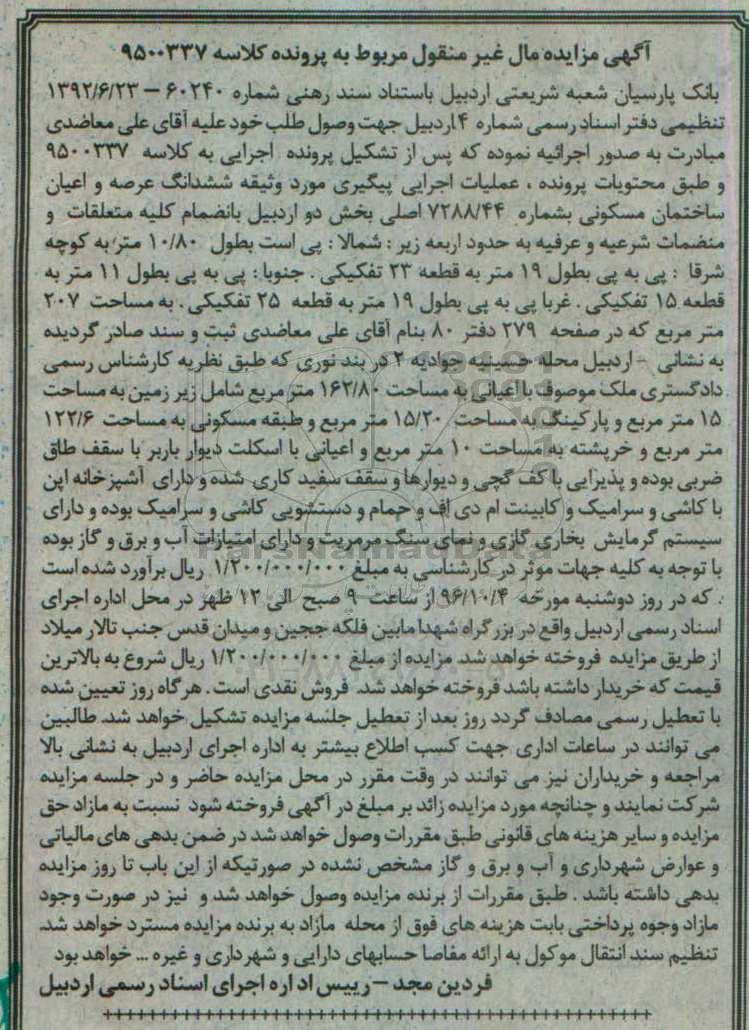 آگهی مزایده مال غیر منقول مربوط به پرونده کلاسه ۹۵۰۰۳۳۷
بانک پارسیان شعبه شریعتی اردبیل باستناد سند رهنی شماره ۶۰۲۴۰ – ۱۳۹۲/۶/۲۳
تنظیمی دفتر اسناد رسمی شماره ۴ اردبیل جهت وصول طلب خود علیه آقای علی معاضدی
مبادرت به صدور اجرائیه نموده که پس از تشکیل پرونده اجرایی به کلاسه ۹۵۰۰۳۳۷
و طبق محتویات پرونده ، عملیات اجرایی پیگیری مورد وثیقه ششدانگ عرصه و اعیان
ساختمان مسکونی بشماره ۷۲۸۸/۴۴ اصلی بخش دو اردبیل بانضمام کلیه متعلقات و
منضمات شرعیه و عرفیه به حدود اربعه زیر : شمالا : پی است بطول ۱۰/۸۰ متر به کوچه
شرقا : پی به پی بطول ۱۹ متر به قطعه ۲۳ تفکیکی . جنوبا : پی به پی بطول ۱۱ متر به
قطعه ۱۵ تفکیکی . غربا پی به پی بطول ۱۹ متر به قطعه ۲۵ تفکیکی . به مساحت ۲۰۷
متر مربع که در صفحه ۲۷۹ دفتر ۸۰ بنام آقای علی معاضدی ثبت و سند صادر گردیده
به نشانی – اردبیل محله حسینیه جوادیه ۲ در بند نوری که طبق نظریه کارشناس رسمی
دادگستری ملک موصوف با اعیانی به مساحت ۱۶۲/۸۰ متر مربع شامل زیر زمین به مساحت
۱۵ متر مربع و پارکینگ به مساحت ۱۵/۲۰ متر مربع و طبقه مسکونی به مساحت ۱۲۲/۶
متر مربع و خرپشته به مساحت ۱۰ متر مربع و اعیانی با اسکلت دیوار باربر با سقف طاق
ضربی بوده و پذیرایی با کف گچی و دیوارها و سقف سفید کاری شده و دارای آشپزخانه اپن
با کاشی و سرامیک و کابینت ام دی اف و حمام و دستشویی کاشی و سرامیک بوده و دارای
سیستم گرمایش بخاری گازی و نمای سنگ مرمریت و دارای امتیازات آب و برق و گاز بوده
با توجه به کلیه جهات موثر در کارشناسی به مبلغ ۱/۲۰۰/۰۰۰/۰۰۰ ریال برآورد شده است
. که در روز دوشنبه مورخه ۹۶/۱۰/۴ از ساعت ۹ صبح الی ۱۲ ظهر در محل اداره اجرای
اسناد رسمی اردبیل واقع در بزرگراه شهدا مابین فلکه ججین و میدان قدس جنب تالار میلاد
از طریق مزایده فروخته خواهد شد. مزایده از مبلغ ۱/۲۰۰/۰۰۰/۰۰۰ ریال شروع به بالاترین
قیمت که خریدار داشته باشد فروخته خواهد شد. فروش نقدی است . هرگاه روز تعیین شده
با تعطیل رسمی مصادف گردد روز بعد از تعطیل جلسه مزایده تشکیل خواهد شد. طالبین
می توانند در ساعات اداری جهت کسب اطلاع بیشتر به اداره اجرای اردبیل به نشانی بالا
مراجعه و خریداران نیز می توانند در وقت مقرر در محل مزایده حاضر و در جلسه مزایده
شرکت نمایند و چنانچه مورد مزایده زائد بر مبلغ در آگهی فروخته شود نسبت به مازاد حق
مزایده و سایر هزینه های قانونی طبق مقررات وصول خواهد شد در ضمن بدهی های مالیاتی
و عوارض شهرداری و آب و برق و گاز مشخص نشده در صورتیکه از این باب تا روز مزایده
بدهی داشته باشد . طبق مقررات از برنده مزایده وصول خواهد شد و نیز در صورت وجود
مازاد وجوه پرداختی بابت هزینه های فوق از محله مازاد به برنده مزایده مسترد خواهد شد.
تنظیم سند انتقال موکول به ارائه مفاصا حسابهای دارایی و شهرداری و غیره ... خواهد بود
فردین مجد – رییس اداره اجرای اسناد رسمی اردبیل